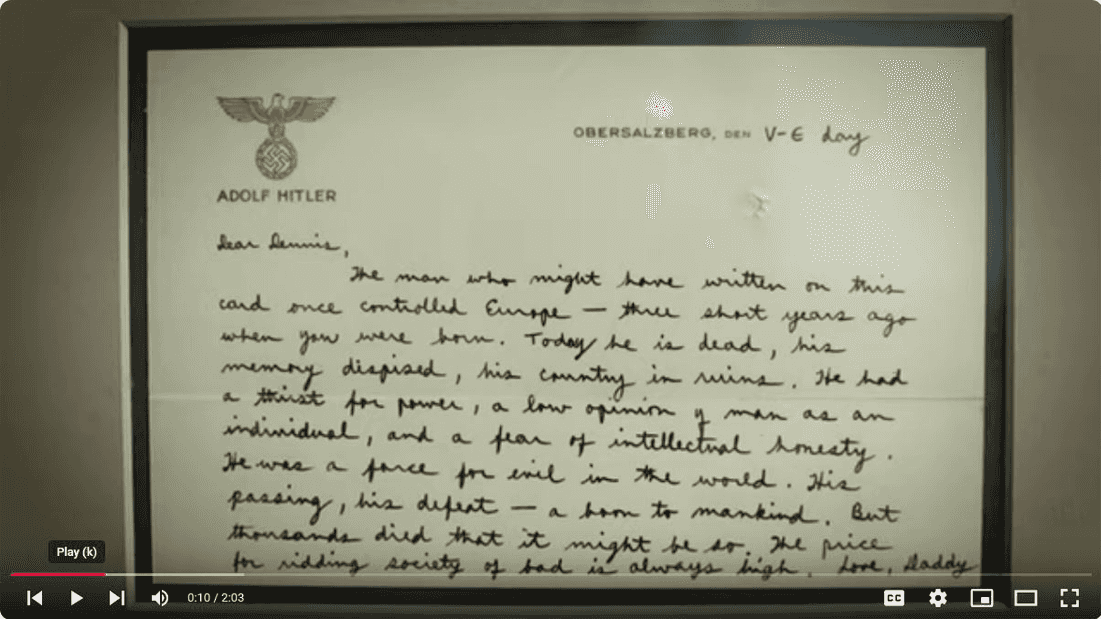 OBERSALZBERG, DEN V-E day
ADOLF HITLER
Dear Dennis,
The man who might have written on this
card once controlled Europe — three short years ago
when you were born. Today he is dead, his
memory dispised, his country in ruins. He had
a thirst for power, a low opinion of man as an
individual, and a fear of intellectual honesty.
He was a force for evil in the world. His
passing, his defeat — a boon to mankind. But
thousands died that it might be so. The price
for ridding society of bad is always high. Love, Daddy
Play (k)
0:10 / 2:03
CC